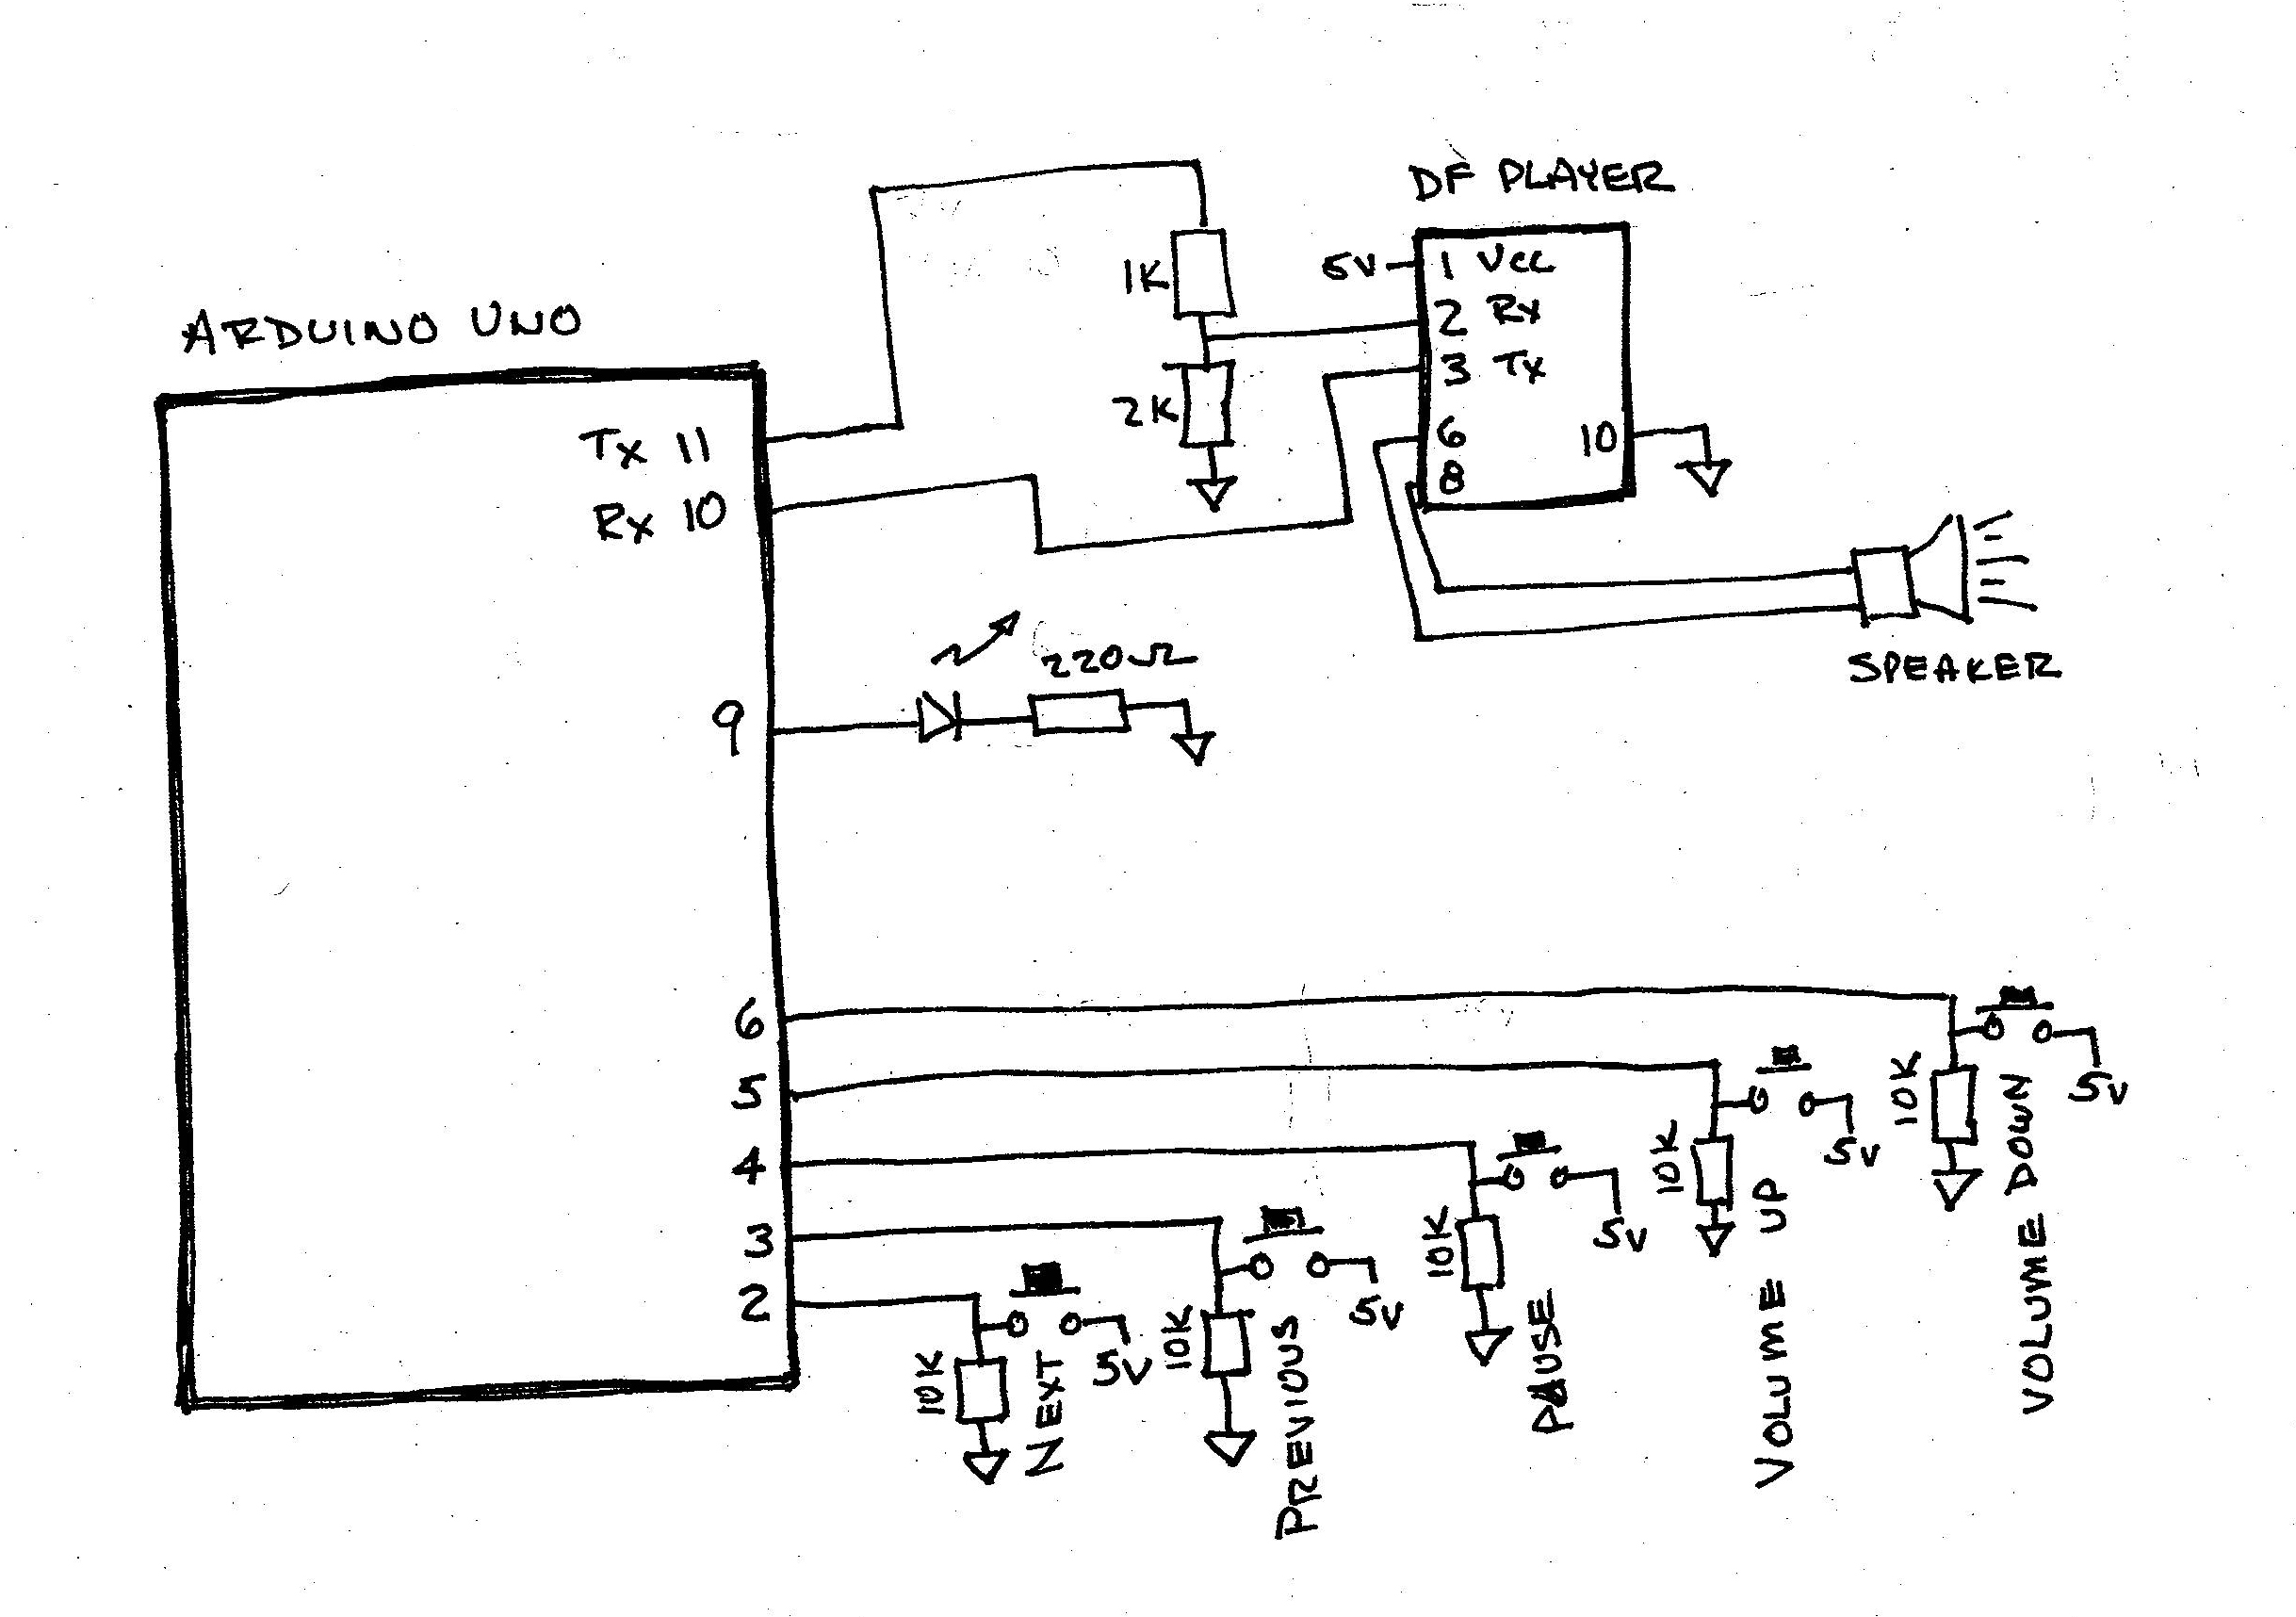 DF PLAYER
5V
1 VCC
1K
2 RX
3 TX
2K
6
10
8
ARDUINO UNO
TX 11
RX 10
220Ω
SPEAKER
9
6
5
4
3
2
10K
NEXT
5V
10K
PREVIOUS
5V
10K
PAUSE
5V
10K
VOLUME UP
5V
10K
VOLUME DOWN
5V